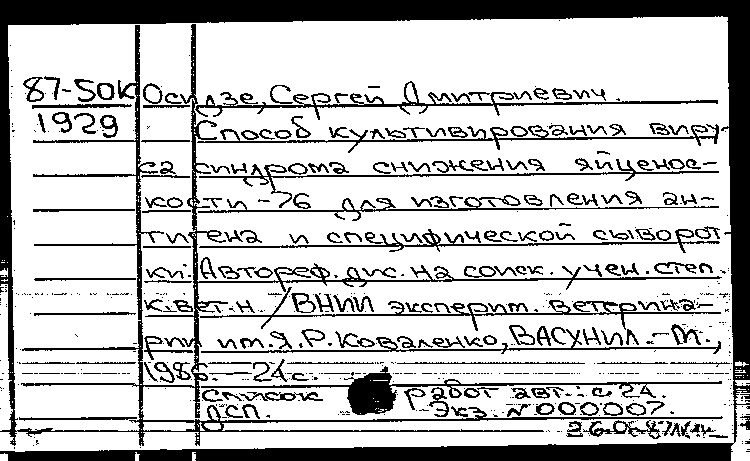 87-50к Осидзе, Сергей Дмитриевич.
1929 Способ культивирования виру-
са синдрома снижения яйценос-
кости-76 для изготовления ан-
тигена и специфической сыворот-
ки: Автореф. дис. на соиск. учен. степ.
к. вет. н. / ВНИИ эксперим. ветерина-
рии им. Я. Р. Коваленко, ВАСХНИЛ. - М.,
1986. - 24 с.
список работ авт.: с. 24.
ДСП. Экз. N 000007.
26.06.87